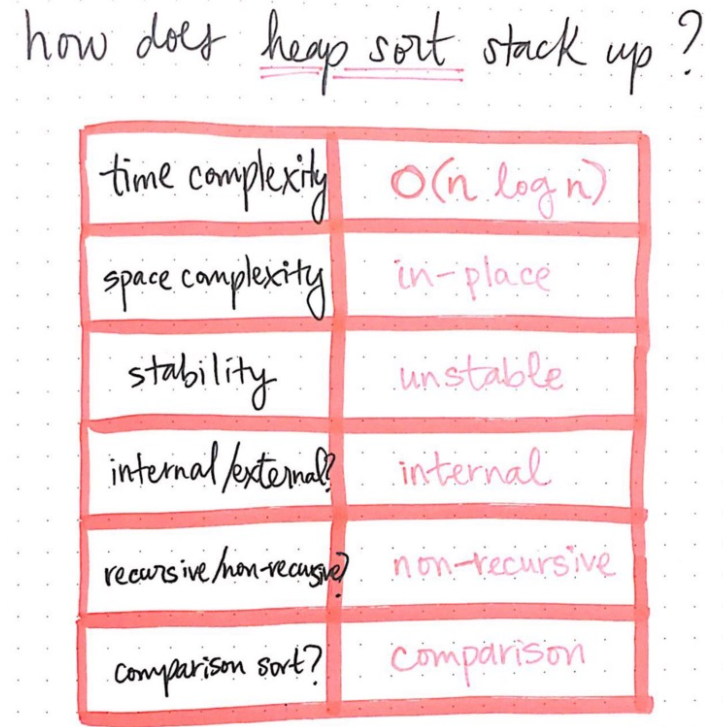 how does heap sort stack up?
time complexity O(n log n)
space complexity in-place
stability unstable
internal/external? internal
recursive/non-recusive? non-recursive
comparison sort? comparison